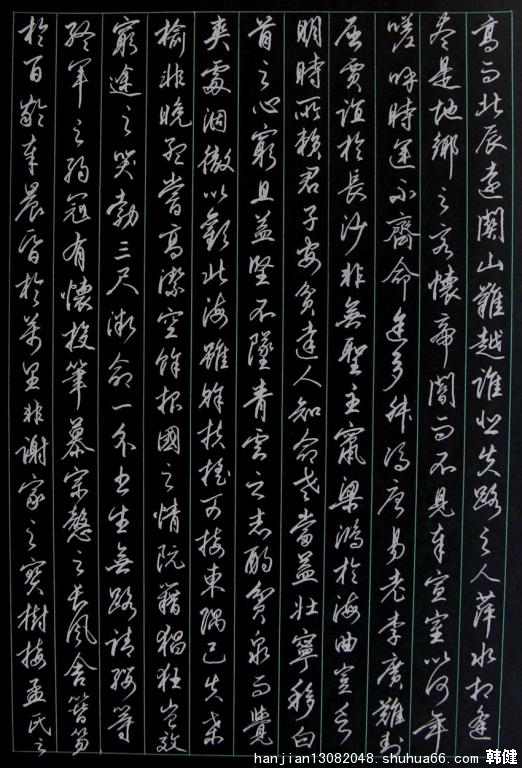 高而北辰遠關山難越誰悲失路之人萍水相逢
盡是他鄉之客懷帝閽而不見奉宣室以何年
嗟呼時運不齊命途多舛馮唐易老李廣難封
屈賈誼於長沙非無聖主竄梁鴻於海曲豈乏
明時所賴君子安貧達人知命老當益壯寧移白
首之心窮且益堅不墜青雲之志酌貪泉而覺
爽處涸轍以歡北海雖賒扶搖可接東隅已失桑
榆非晚孟嘗高潔空餘報國之情阮籍猖狂豈效
窮途之哭勃三尺微命一介書生無路請纓等
終軍之弱冠有懷投筆慕宗慤之長風舍簪笏
於百齡奉晨昏於萬里非謝家之寶樹接孟氏之
hanjian13082048.shuhua66.com 韩健